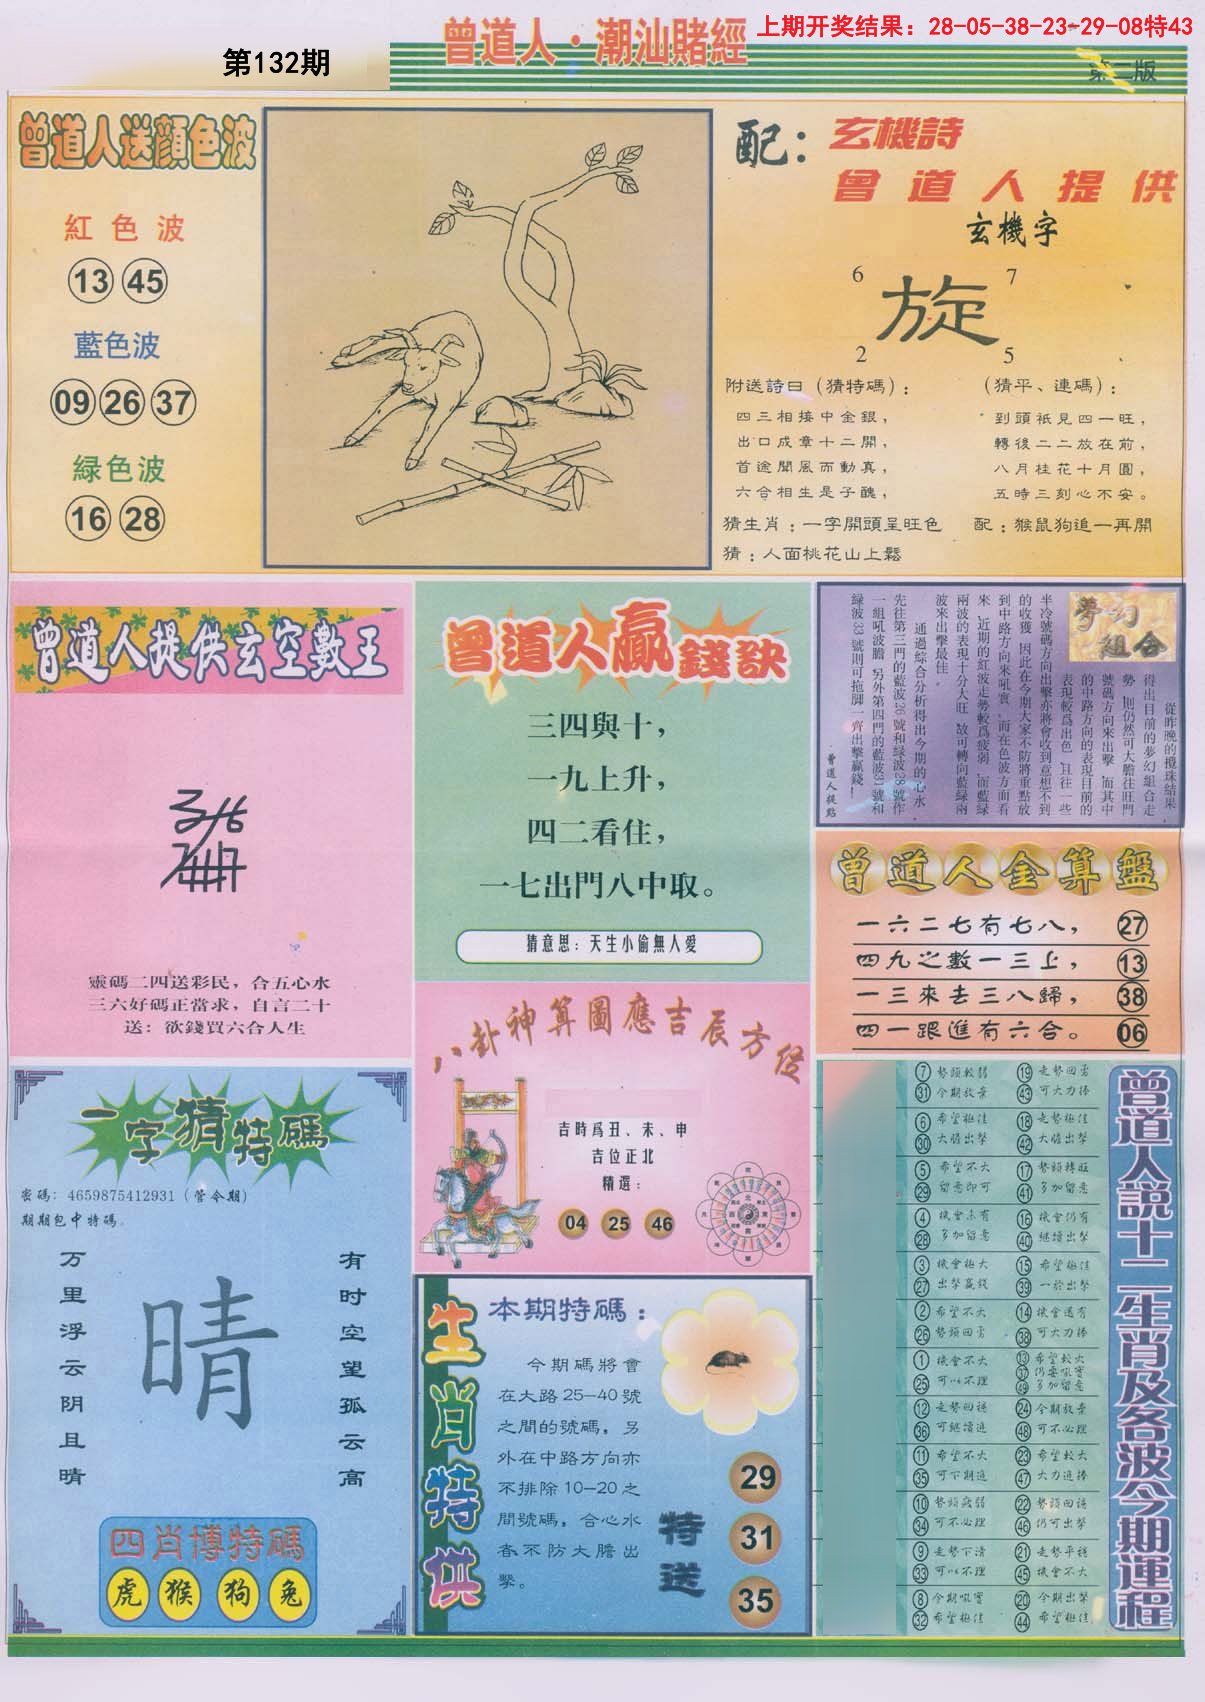 上期开奖结果：28-05-38-23-29-08特43
曾道人·潮汕賭經
第132期
第二版
曾道人送顏色波
紅色波
13 45
藍色波
09 26 37
緑色波
16 28
配：玄機詩
曾道人提供
玄機字
6 7
旋
2 5
附送詩曰（猜特碼）：
四三相接中金銀，
出口成章十二開，
首途聞風而動真，
六合相生是子醜，
（猜平、連碼）：
到頭祇見四一旺，
轉後二二放在前，
八月桂花十月圓，
五時三刻心不安。
猜生肖：一字開頭呈旺色
配：猴鼠狗追一再開
猜：人面桃花山上鬆
曾道人提供玄空數王
靈碼二四送彩民，合五心水
三六好碼正當求，自言二十
送：欲錢買六合人生
曾道人贏錢訣
三四與十，
一九上升，
四二看住，
一七出門八中取。
猜意思：天生小偷無人愛
夢幻
組合
從昨晚的攪珠結果，
得出目前的夢幻組合走
勢，則仍然可大膽往旺門
號碼方向來出擊，而其中
的中路方向的表現目前的
表現較爲出色，且往一些
半冷號碼方向出擊亦將會收到意想不到
的收獲，因此在今期大家不防將重點放
到中路方向來吼實，而在色波方面看
來，近期的紅波走勢較爲疲弱，而藍緑
兩波的表現十分大旺，故可轉向藍緑兩
波來出擊最佳。
通過綜合分析得出今期的心水
先往第三門的藍波26號和緑波28號作
一組吼波膽，另外第四門的藍波31號和
緑波33號則可拖脚一齊出擊贏錢。
曾道人提點
曾道人金算盤
一六二七有七八， 27
四九之數一三上， 13
一三來去三八歸， 38
四一跟進有六合。 06
八卦神算圖應吉辰方位
吉時爲丑、未、申
吉位正北
精選：
04 25 46
一字猜特碼
密碼：4659875412931（管令期）
期期包中特碼。
万里浮云阴且晴
晴
有时空望孤云高
四肖博特碼
虎 猴 狗 兔
生肖特供
本期特碼：
今期碼將會
在大路25—40號
之間的號碼，另
外在中路方向亦
不排除10—20之
間號碼，合心水
者不防大膽出
擊。
特送
29
31
35
曾道人說十二生肖及各波今期運程
7 勢頭較弱 19 走勢回勇
31 今期放棄 43 可大力捧
6 希望極佳 18 走勢極佳
30 大膽出擊 42 大膽出擊
5 希望不大 17 勢頭轉旺
29 留意即可 41 多加留意
4 機會亦有 16 機會仍有
28 多加留意 40 継續出擊
3 機會極大 15 希望極佳
27 出擊贏錢 39 一於出擊
2 希望不大 14 機會還有
26 勢頭回勇 38 可大力捧
1 機會不大 13 希望較大
25 可以不理 37 仍要吼實
49 多加留意
12 走勢回穩 24 今期放棄
36 可継續追 48 可不必理
11 希望不大 23 希望較大
35 可下期追 47 大力追捧
10 勢頭疲弱 22 勢頭回穩
34 可不必理 46 仍可出擊
9 走勢下滑 21 走勢平穩
33 可以不理 45 機會不大
8 今期吼實 20 今期出擊
32 希望極佳 44 希望極佳